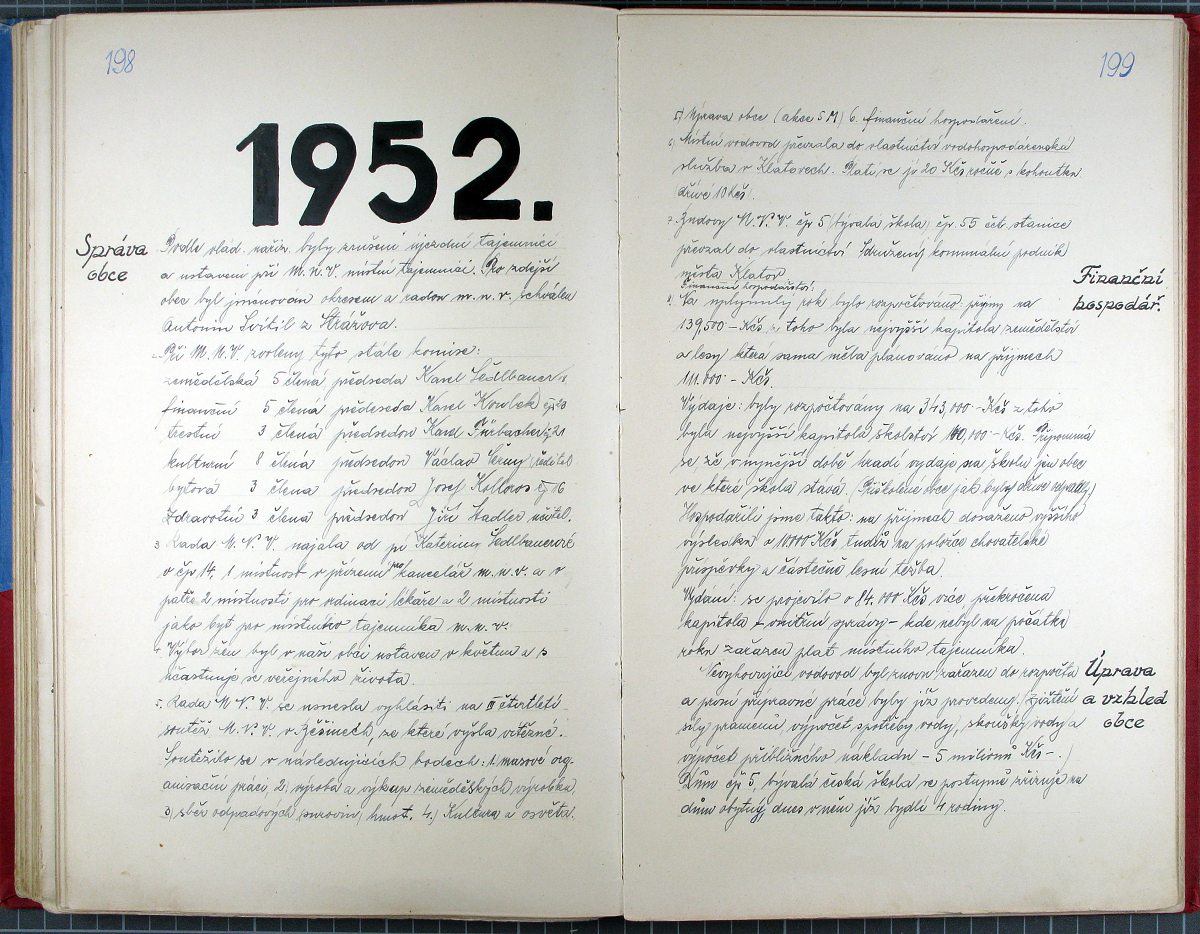 198
1952.
Správa
obce
Podle vlád. naříz. byly zrušeni újezdní tajemníci
a ustaveni při M.N.V. místní tajemníci. Pro zdejší
obec byl jmenován okresem a radou m.n.v. schválen
Antonín Svitil z Strážova.
Při M.N.V. zvoleny tyto stálé komise:
zemědělská 5 členná předseda Karel Sedlbauer
finanční 5 členná předseda Karel
trestní 3 členná předsedou Karel Fürbacher čp 21
kulturní 8 členná předsedou Václav Černý ředitel
bytová 3 členná předsedou Josef Kolloros čp 16
Zdravotní 3 členná předsedou Jiří Hadler učitel.
3. Rada M.N.V. najala od pí Kateřiny Sedlbauerové
v čp 14, 1 místnost v přízemí pro kancelář m.n.v. a v
patře 2 místnosti pro ordinaci lékaře a 2 místnosti
jako byt pro místního tajemníka m.n.v.
4. Výbor žen byl v naší obci ustaven v květnu a
účastňuje se veřejného života.
5. Rada M.N.V. se usnesla vyhlásiti na III čtvrtletí
soutěž M.N.V. v Běšinech, ze které vyšla vítězně.
Soutěžilo se v následujících bodech: 1. masové org.
anisační práci, 2) výroba a výkup zemědělských výrobků,
3) sběr odpadových surovin hmot. 4.) Kultura a osvěta.
199
5) Úprava obce (akce 5M) 6. finanční hospodaření.
6) Místní vodovod převzala do vlastnictví vodohospodárenská
služba v Klatovech. Platí se jí 20 Kčs ročně s kohoutku
dříve 10 Kčs.
7. Budovy M.N.V. čp 5 (bývalá škola) čp. 55 čet. stanice
převzal do vlastnictví Sdružený komunální podnik
města Klatov
Finanční
hospodář.
Finanční hospodářství:
Na uplynulý rok bylo rozpočtováno: příjmy na
139,500 – Kčs z toho byla nejvyšší kapitola zemědělství
a lesy která sama měla plánováno na příjmech
111.000 – Kčs.
Vydaje: byly rozpočtovány na 343,000 – Kčs z toho
byla nejvyšší kapitola školství 100,000 – Kčs. Připomíná
se že v nynější době hradí vydaje na školu jen obec
ve které škola stává. (Přiškolené obce jak bylo dříve neplatí.)
Hospodařili jsme takto: na příjmech dosaženo vyššího
výsledku o 11000 Kčs tudíž na položce chovatelské
příspěvky a částečně lesní těžba.
Vydání: se projevilo o 84.000 Kčs více překročena
kapitola – vnitřní správy – kde nebyl na počátku
roku zařazen plat místního tajemníka.
Úprava
a vzhled
obce
Nevyhovující vodovod byl znovu zařazen do rozpočtu
a první přípravné práce byly již provedeny. (zjištění
síly pramenů, výpočet spotřeby vody, zkoušky vody a
výpočet přibližného nákladu – 5 milionů Kčs –.)
Dům čp 5, bývalá česká škola se postupně zřizuje na
dům obytný, dnes v něm již bydlí 4 rodiny.